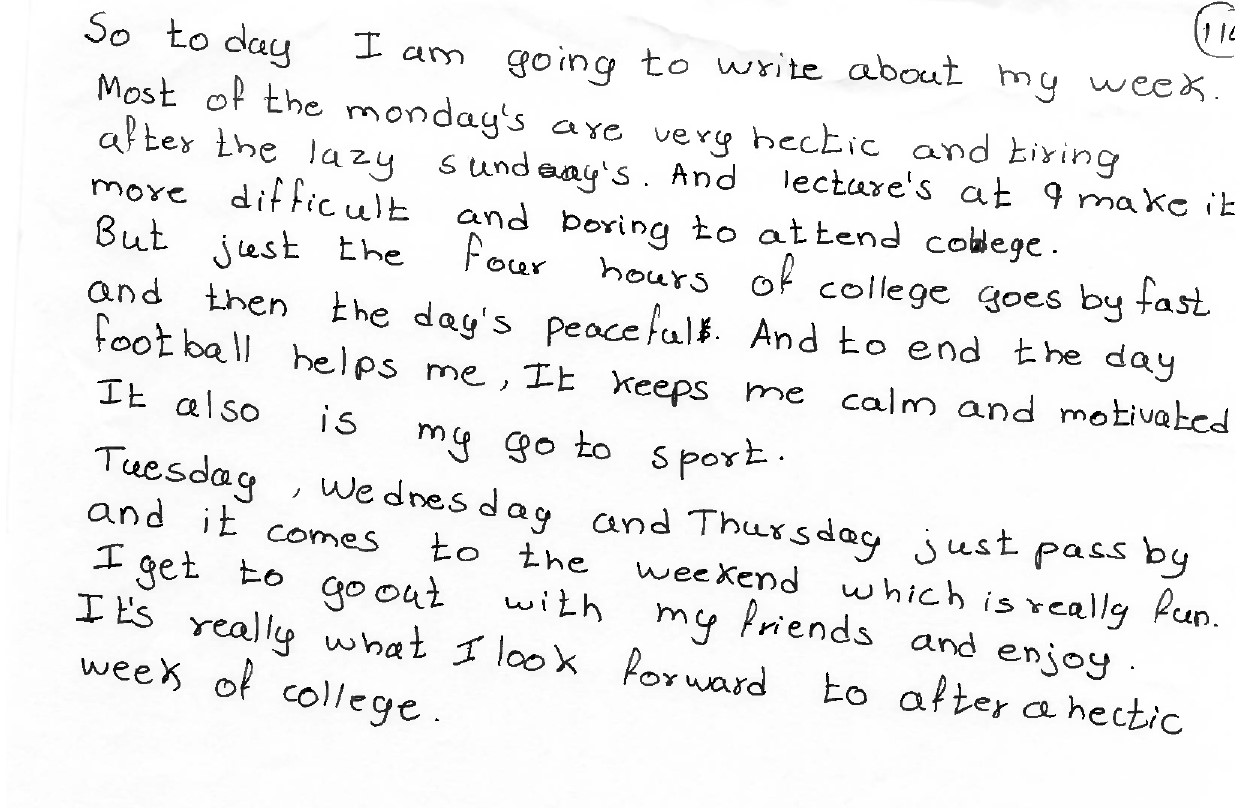 So today I am going to write about my week.
Most of the monday's are very hectic and tiring
after the lazy sunday's. And lecture's at 9 make it
more difficult and boring to attend college.
But just the four hours of college goes by fast
and then the day's peaceful. And to end the day
football helps me, It keeps me calm and motivated
It also is my go to sport.
Tuesday, Wednesday and Thursday just pass by
and it comes to the weekend which is really fun.
I get to go out with my friends and enjoy.
It's really what I look forward to after a hectic
week of college.